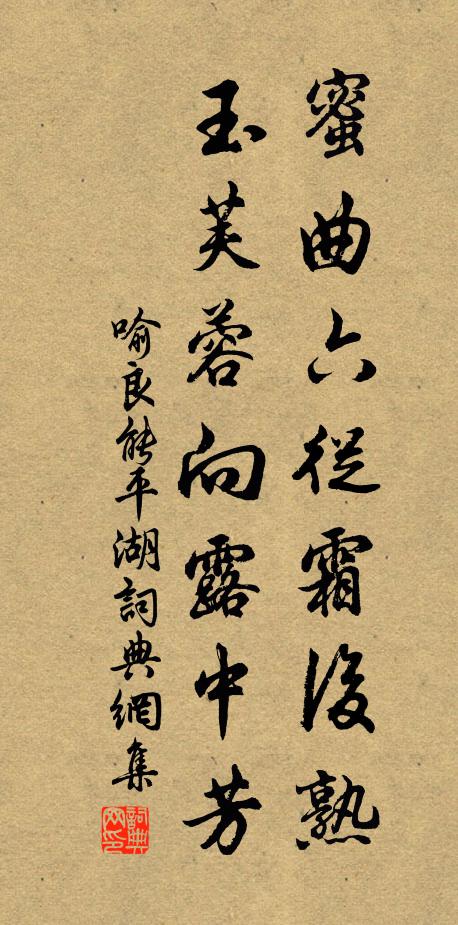 蜜曲六從霜後熟
玉芙蓉向露中芳
喻良能平湖詞典網集
詞典网印